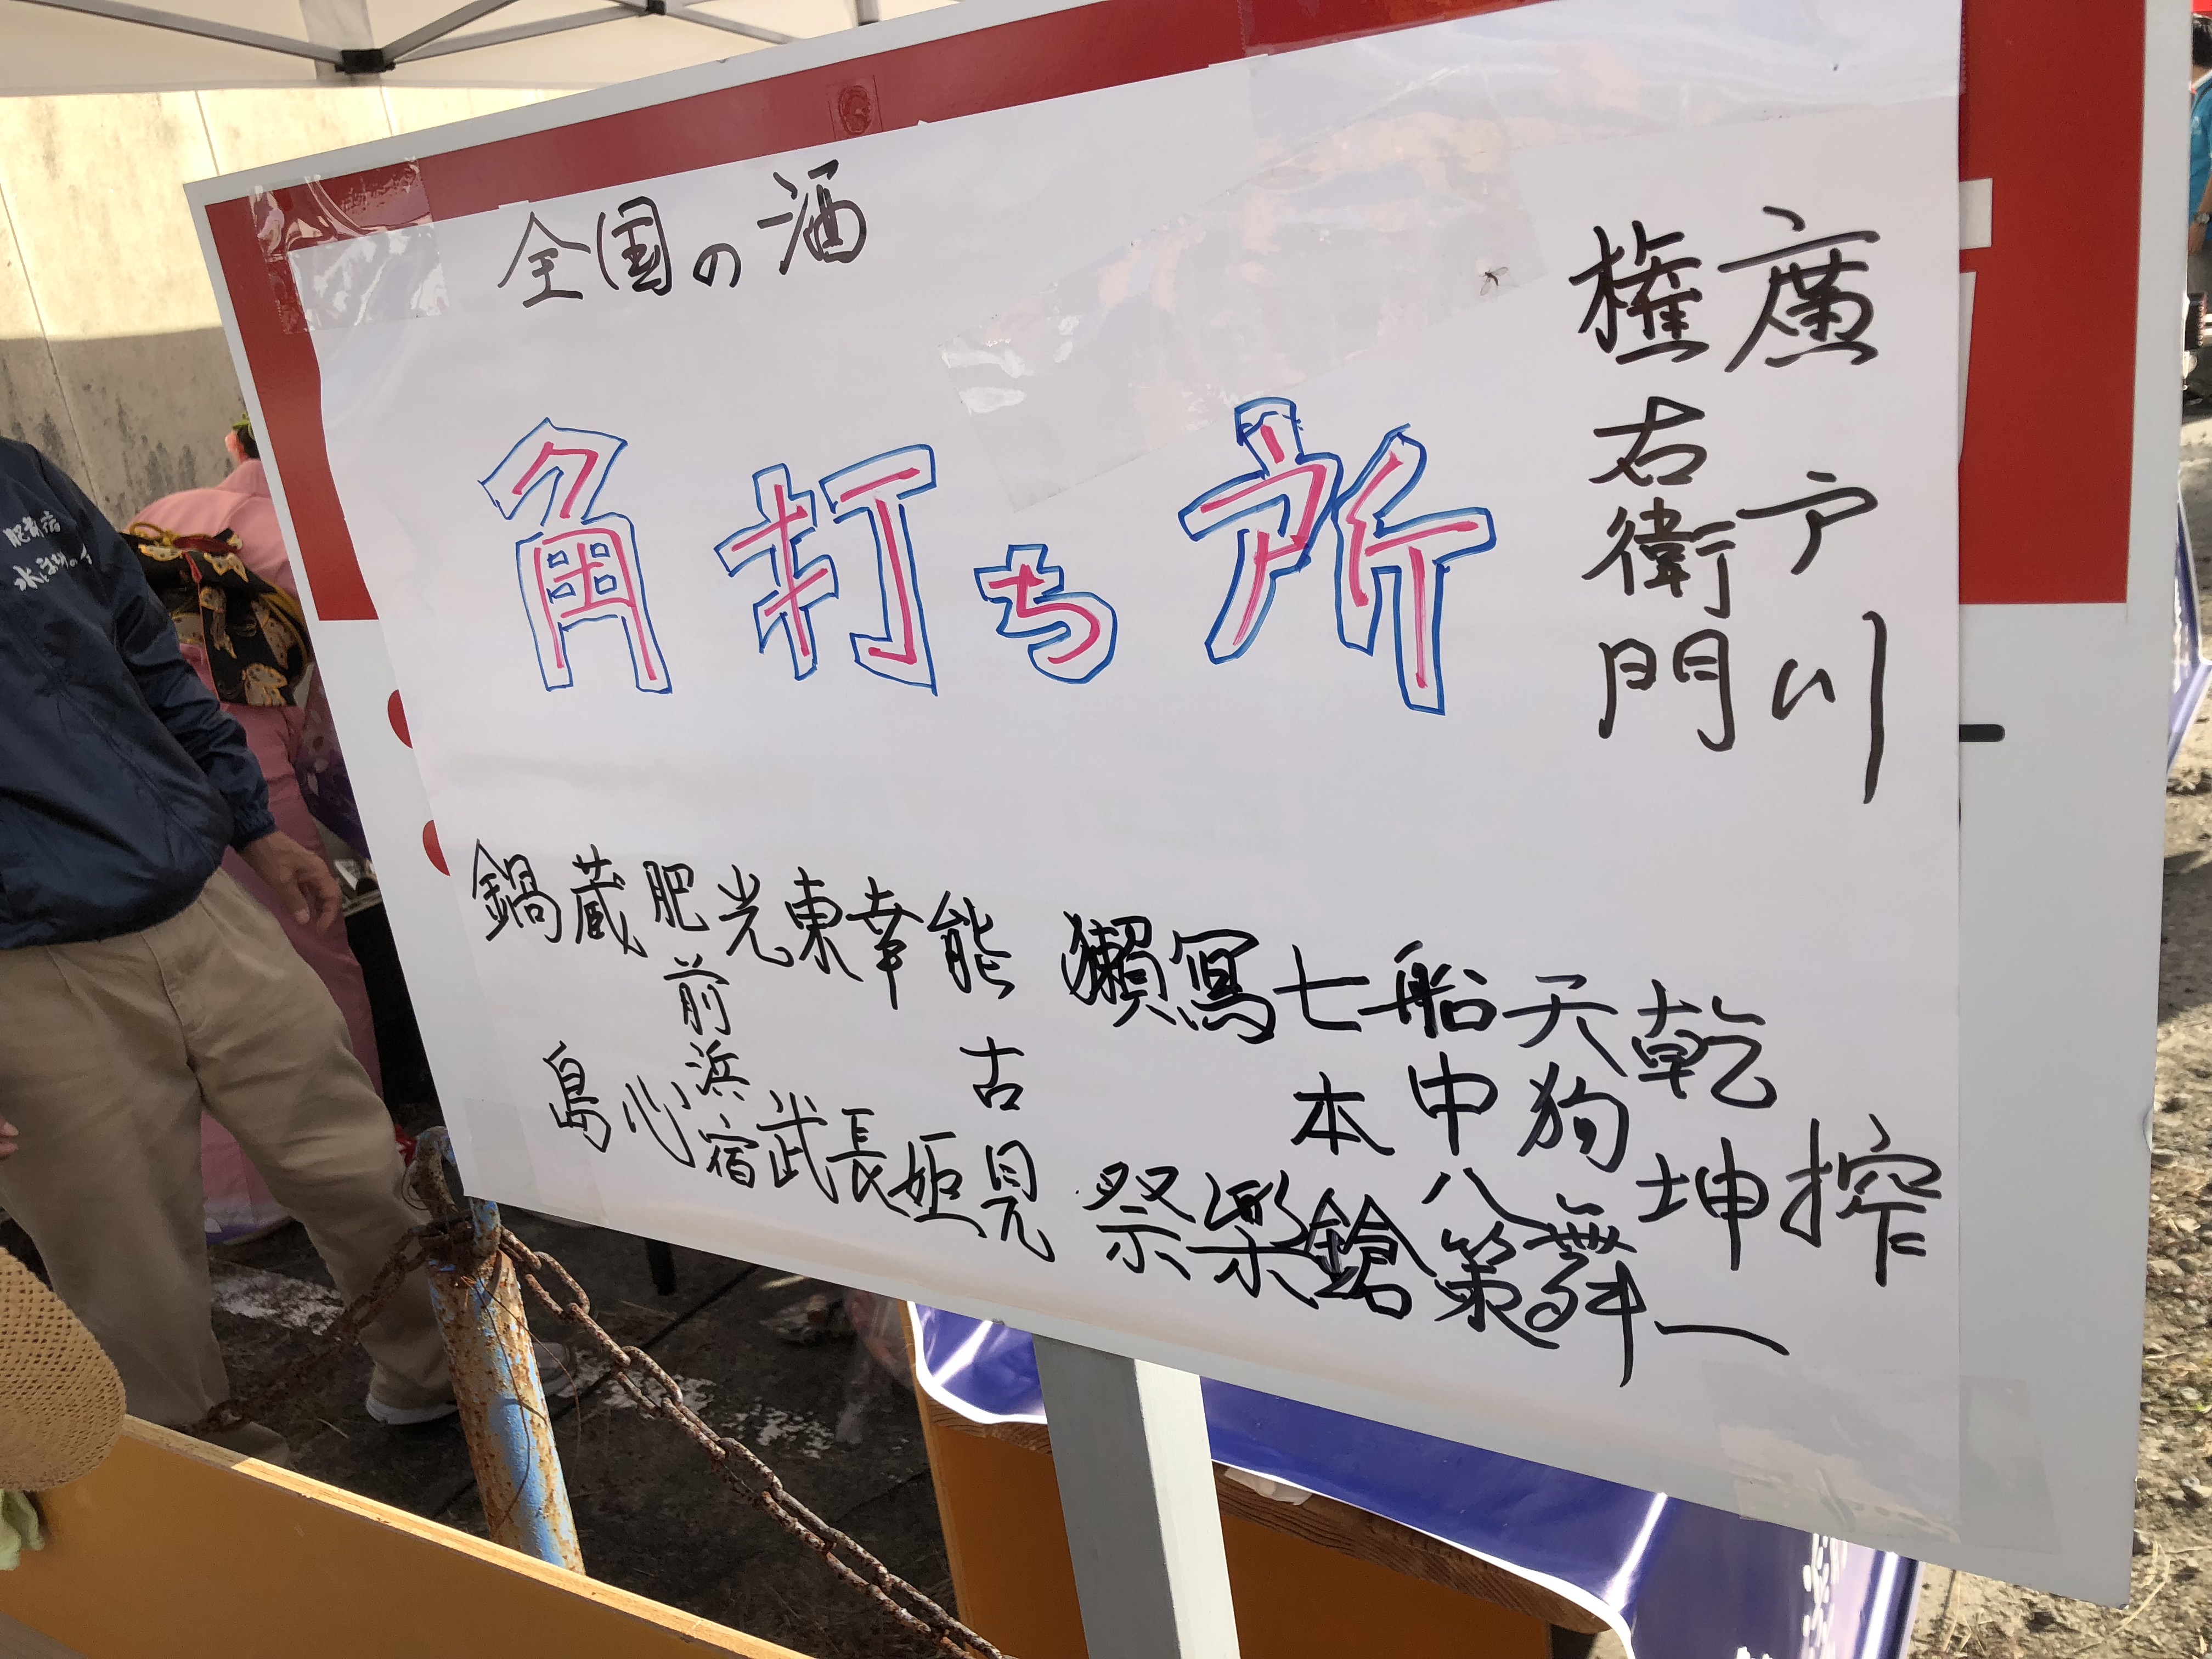 全国の酒
角打ち所
廣戸川
権右衛門
搾一
乾坤一
天狗舞
船中八策
七本鎗
寫樂
獺祭
能古見
幸姫
東長
光武
肥前浜宿
蔵心
鍋島
肥前宿